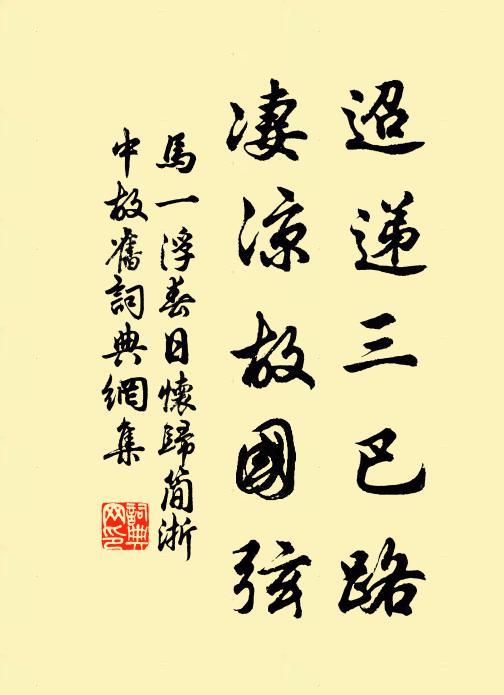 迢递三巴路
凄凉故國弦
馬一浮春日懷歸簡浙
中故舊詞典網集
詞典
网印